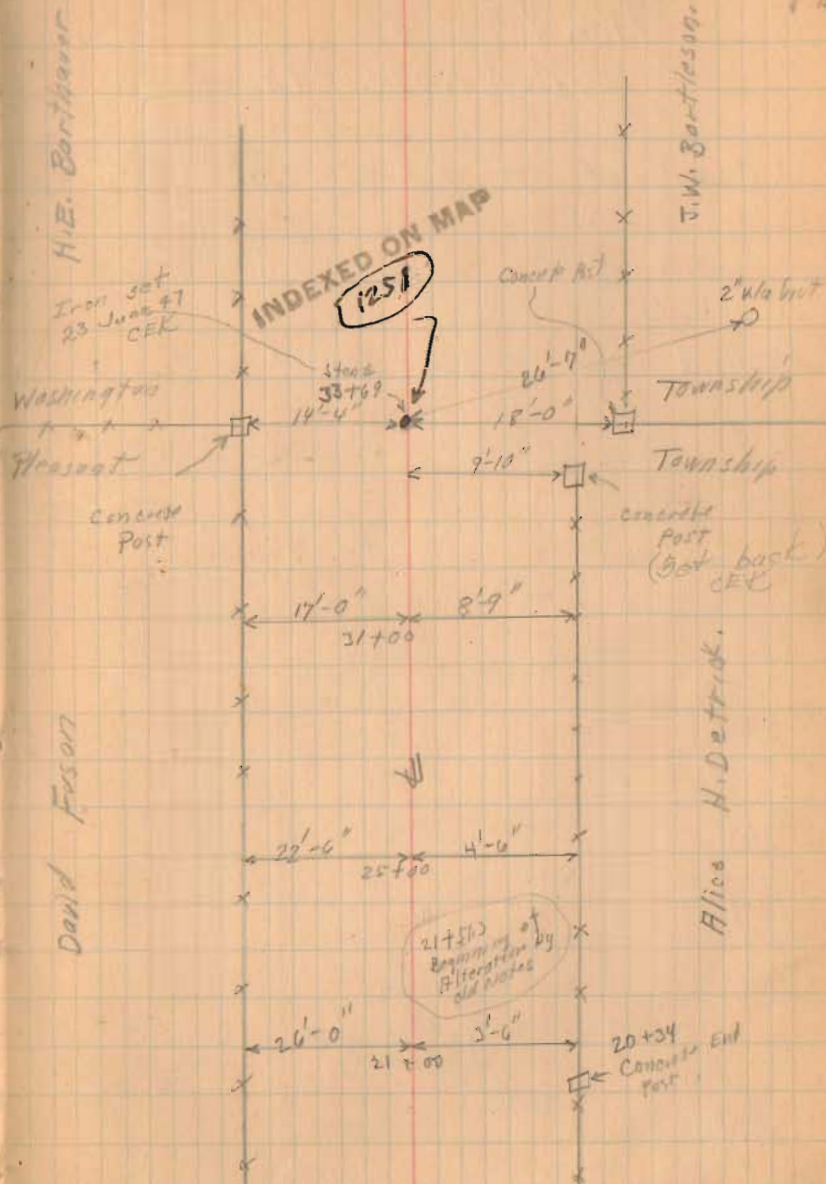 H.E. Barthauer
J.W. Bartleson.
INDEXED ON MAP
1251
Iron set
23 June 47
CEK
Concrete Post
2" Wla
Stone
33+69
26'-17"
Washington
Township
14'-4"
18'-0"
Pleasant
Township
9'-10"
Concrete
Post
Concrete
Post
(Set back)
CEK
17'-0"
8'-9"
31+00
David Fuson
Alice H. Detrick.
22'-6"
4'-6"
25+00
Beginning of
Alteration by
old notes
26'-0"
3'-6"
21+00
20+34
Concrete End
Post